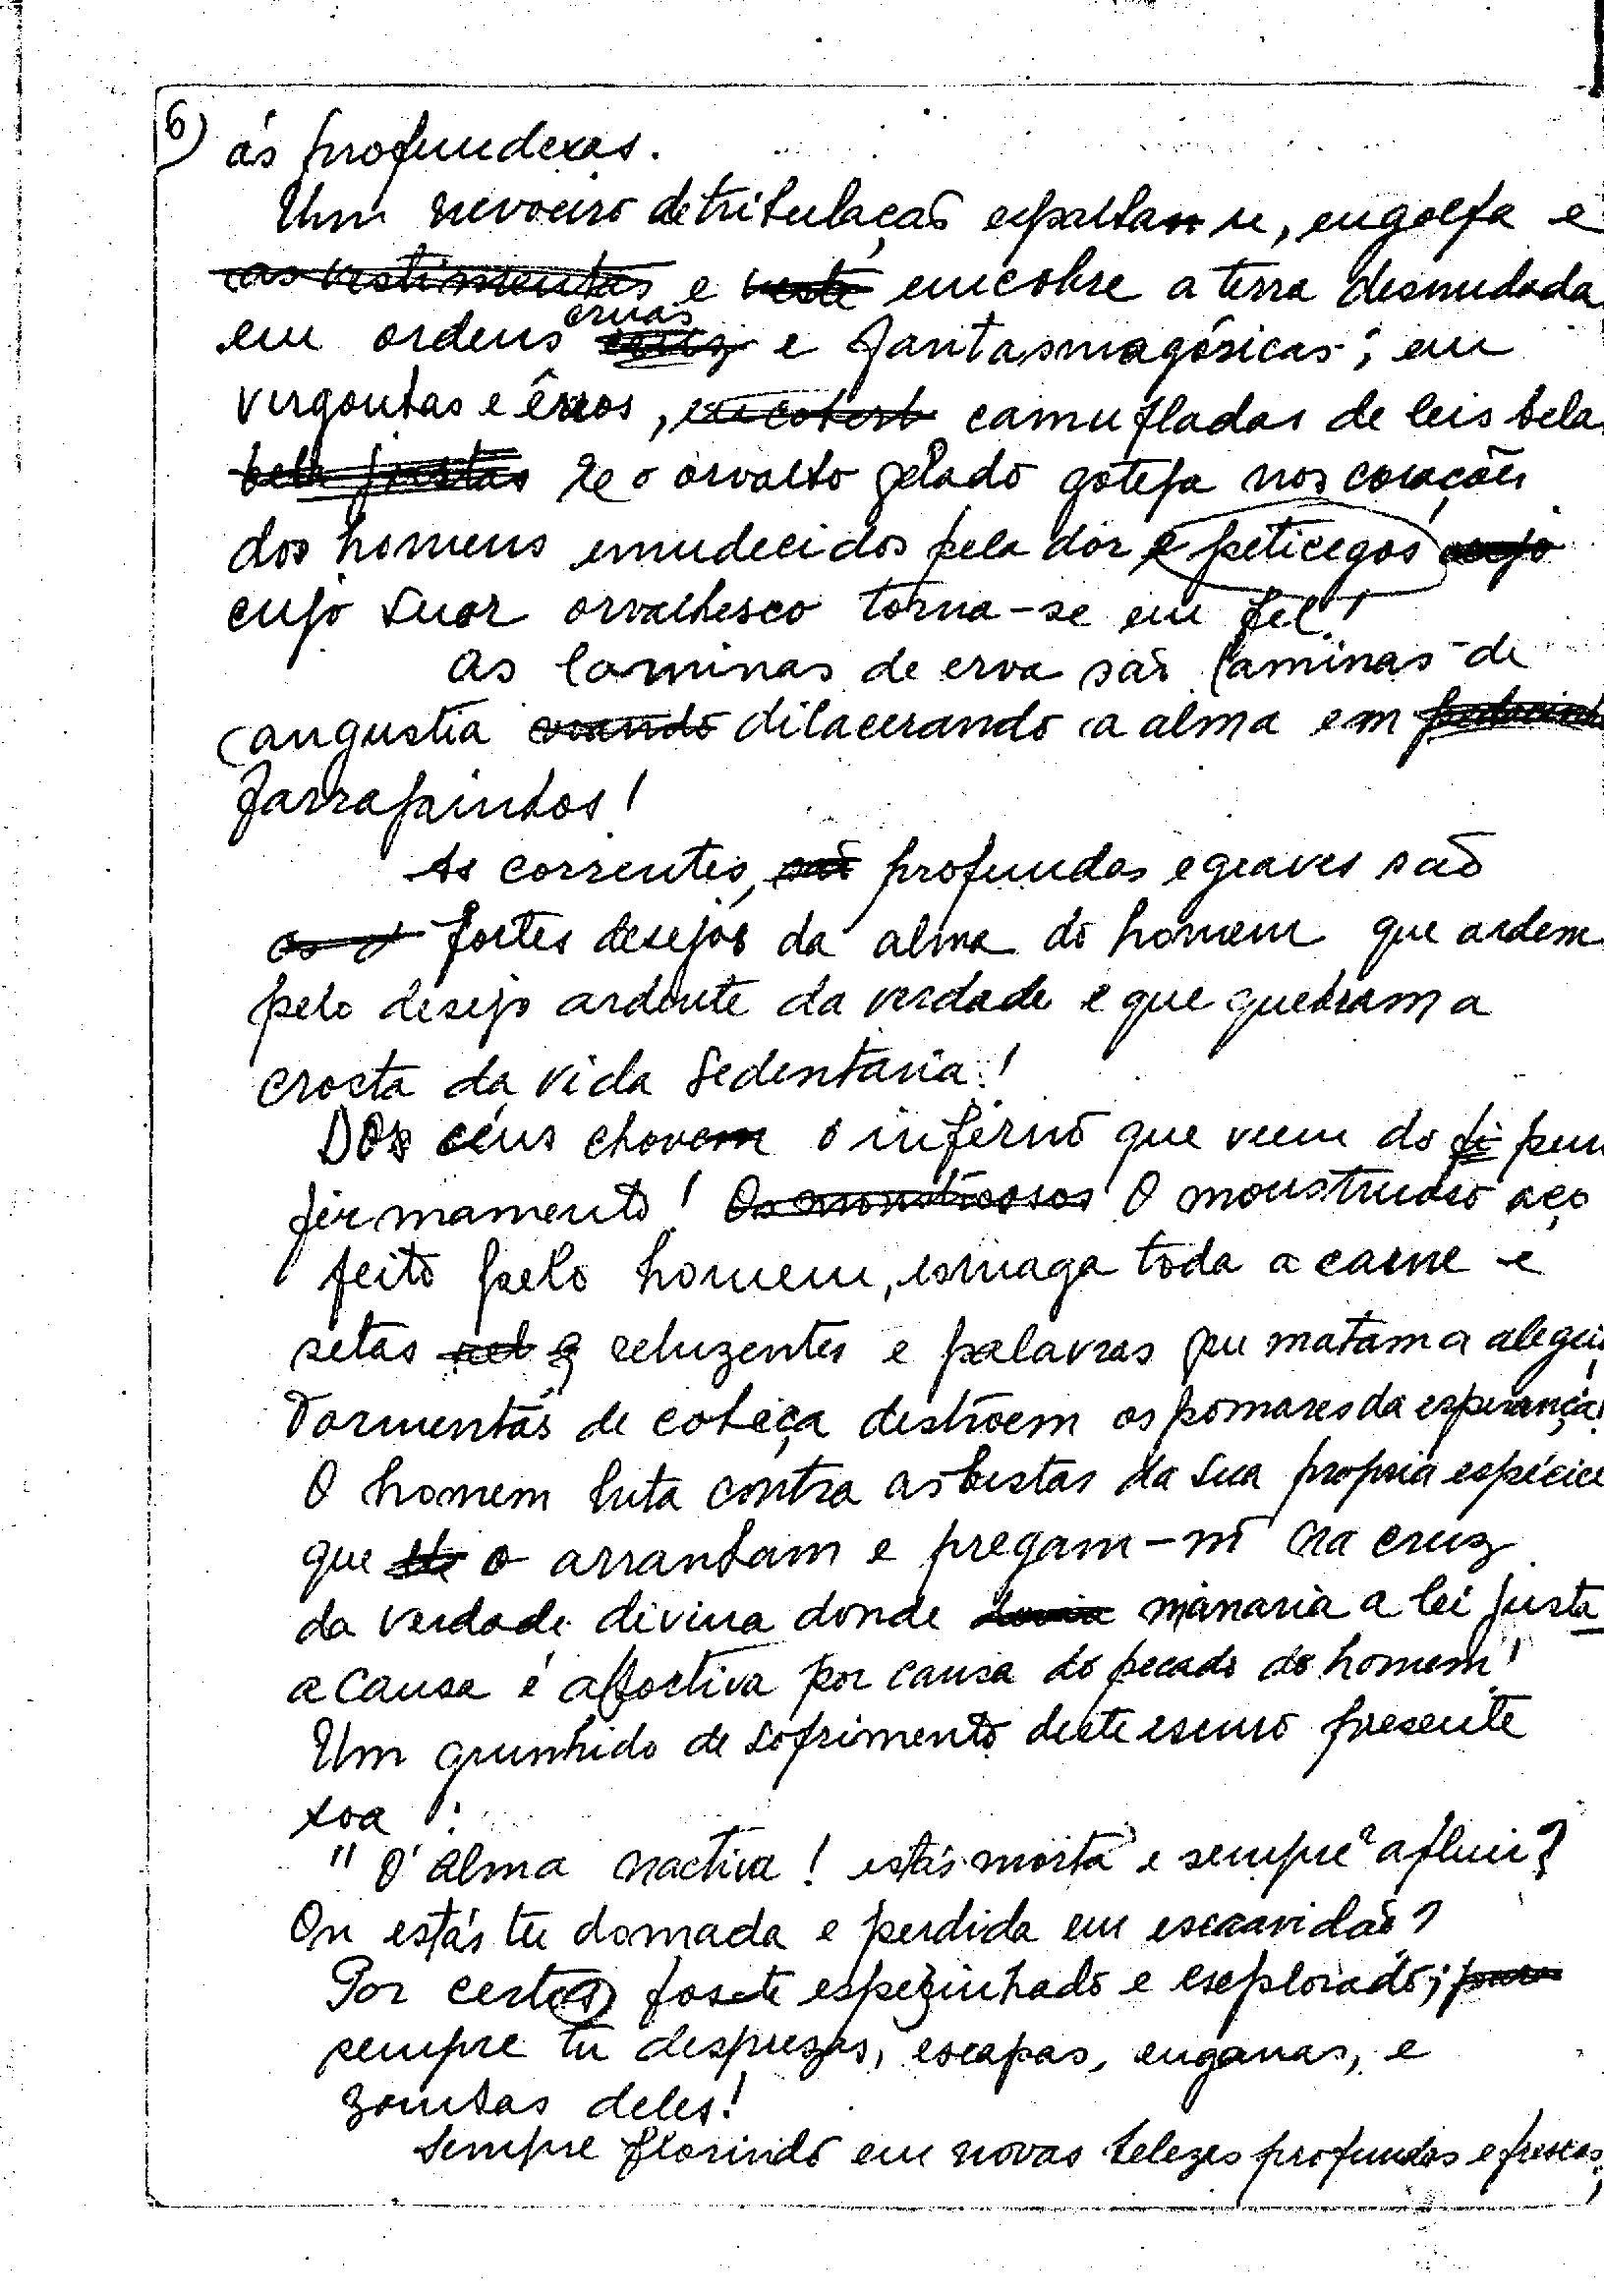 6)
ás profundezas.
Um nevoeiro de tribulação espalha se, engolfa e
as vestimentas e veste encobre a terra desnudada
em ordens cruas e fantasmagóricas; em
vergontas e êrros, encobert camufladas de leis bela
bela justas e o orvalho gelado goteja nos corações
dos homens emudecidos pela dôr e peticegos cujo
cujo suor orvalhesco torna-se em fel!
As laminas de erva são laminas de
angustia dilacerando a alma em
farrapinhos!
As correntes, são profundas e graves são
fortes desejos da alma do homem que ardem
pelo desejo ardente da verdade e que quebram a
crosta da vida sedentária!
Dos céus chovem o inferno que veem do fi pur
firmamento! Os monstruosos O monstruoso aço
feito pelo homem, esmaga toda a carne e
setas rel reluzentes e palavras que matam a alegri
Tormentas de cobiça destróem os pomares da esperança!
O homem luta contra as bestas da sua propria espécie
que o arranham e pregam-no na cruz
da verdade divina donde manaria a lei justa
a causa é abortiva por causa do pecado do homem!
Um grunhido de sofrimento deste escuro presente
soa:
"Ó alma inactiva! estás morta e sempre a fluir?
Ou estás tu domada e perdida em escravidão?
Por certo foste espezinhado e explorado; para
sempre tu desprezas, escapas, enganas, e
zombas deles!
Sempre florindo em novas belezas profundas e frescas;